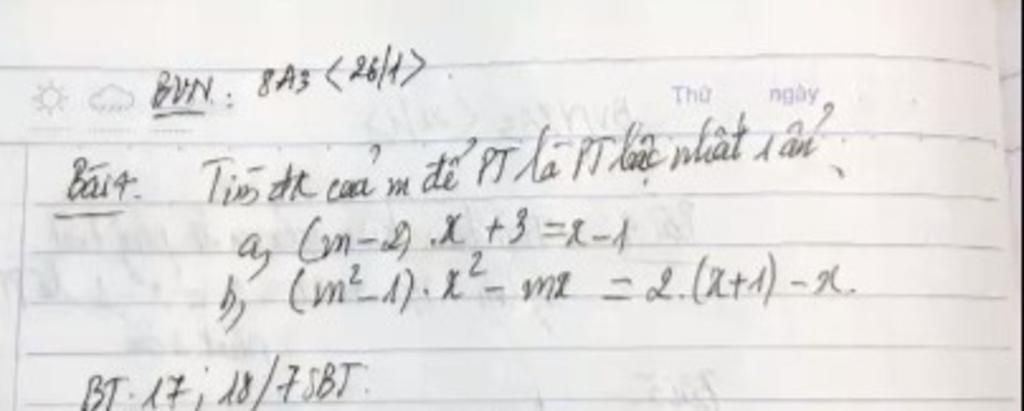 BVN: 8A3 <26/1>
Thứ ngày
Bài 4. Tìm đk của m để PT là PT bậc nhất 1 ẩn
a, (m-2).x + 3 = x-1
b, (m²-1).x² - mx = 2.(x+1) - x.
BT. 17; 18/7 SBT.